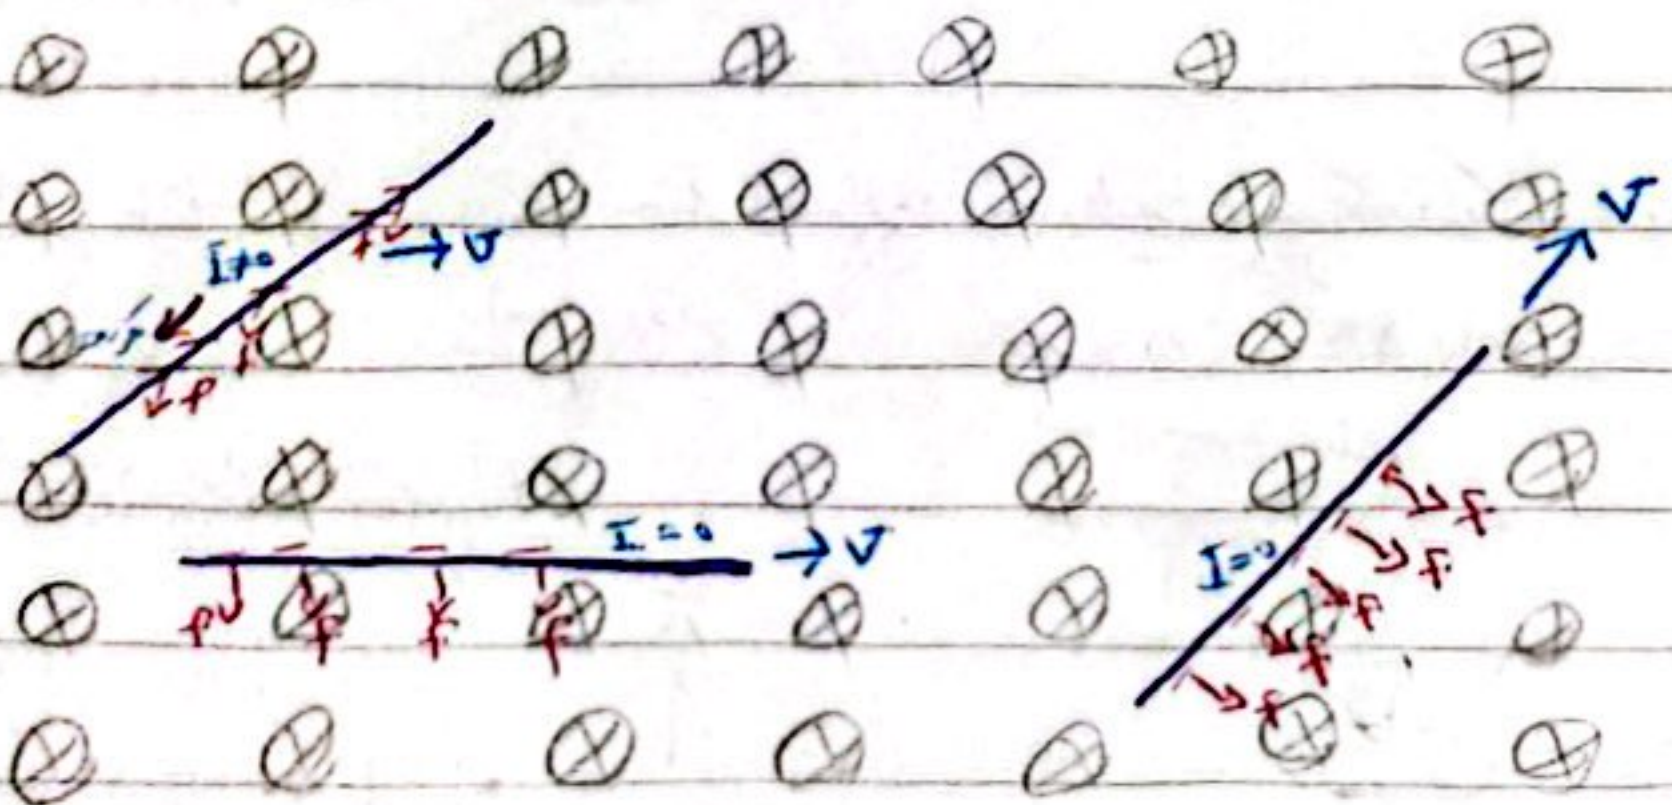 V
I≠0
→ V
F
I = 0
→ V
F F F F
I=0
F
F
F
F
F